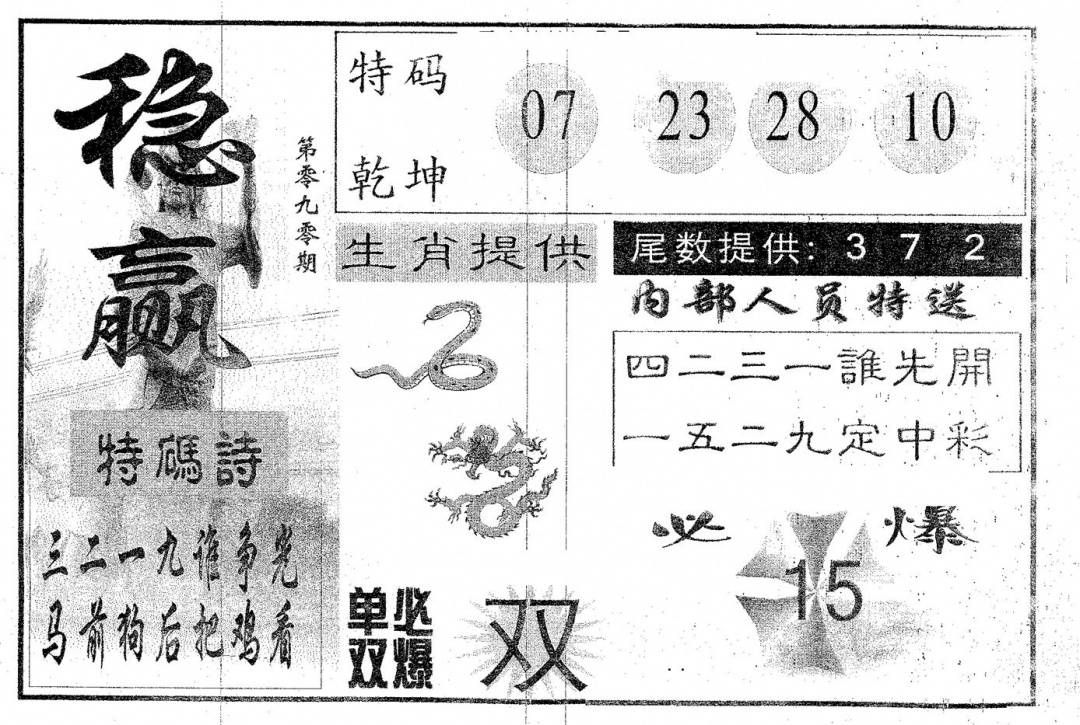 稳赢
第零九零期
特碼詩
三二一九谁争光
马前狗后把鸡看
特码
乾坤
07 23 28 10
生肖提供
单双必爆
双
尾数提供: 3 7 2
内部人员特送
四二三一誰先開
一五二九定中彩
必爆
15